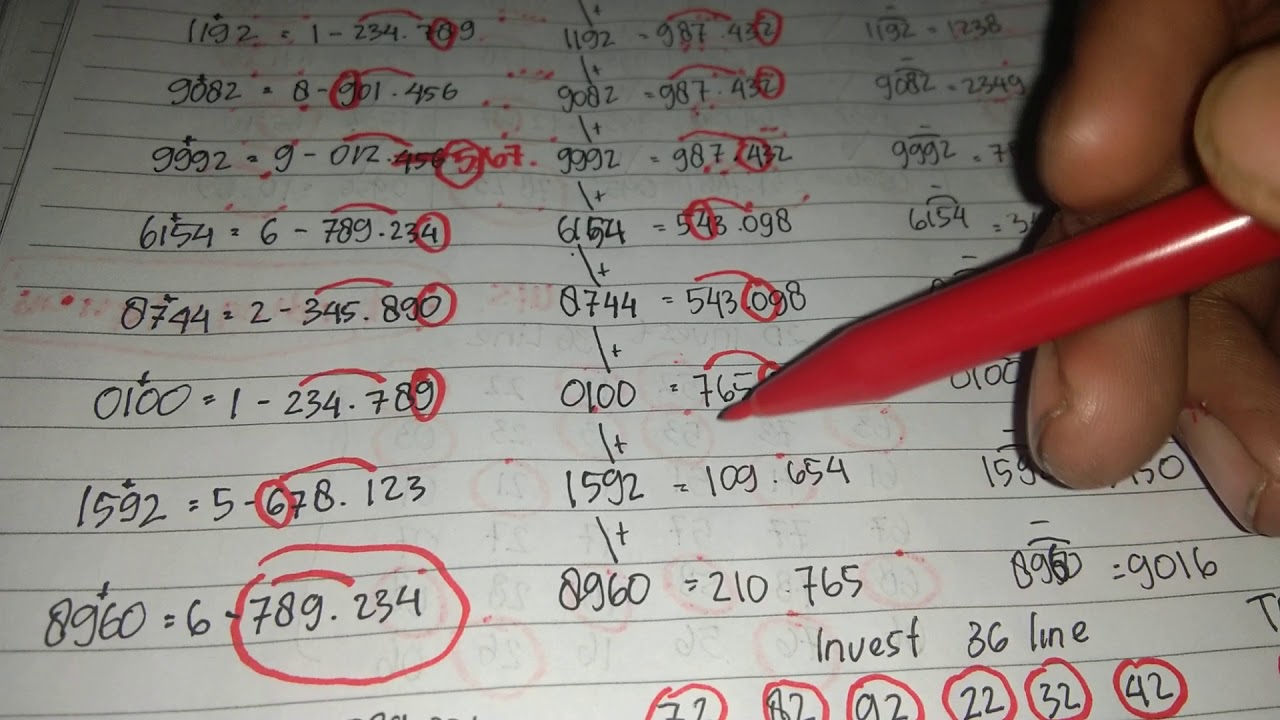 1192 = 1 - 234.789 1192 = 987.432 1192 = 1238
9082 = 8 - 901.456 9082 = 987.432 9082 = 2349
9992 = 9 - 012.456 567. 9992 = 987.432 9992 =
6154 = 6 - 789.234 6154 = 543.098 6154 =
8744 = 2 - 345.890 8744 = 543.098
0100 = 1 - 234.789 0100 = 765 0100
1592 = 5 - 678.123 1592 = 109.654
8960 = 6 - 789.234 8960 = 210.765 8960 = 9016
Invest 36 line
72 82 92 22 32 42